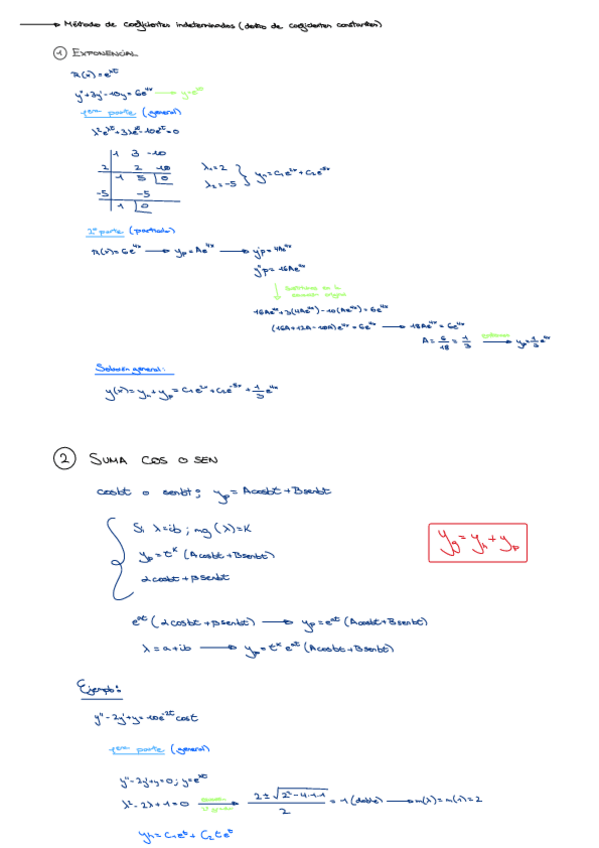 → Método de coeficientes indeterminados (dentro de coeficientes constantes)
① EXPONENCIAL
r(x)=e^{λt}
y''+3y'-10y=6e^{4x} →
1era parte (general)
λ²e^{λt}+3λe^{λt}-10e^{λt}=0
1 3 -10
2 2 10
1 5 0
-5 -5
1 0
λ₁=2
λ₂=-5 } y_h=C₁e^{2x}+C₂e^{-5x}
2ª parte (particular)
r(x)=6e^{4x} → y_p=Ae^{4x} → y'p=4Ae^{4x}
y''p=16Ae^{4x}
16Ae^{4x}+3(4Ae^{4x})-10(Ae^{4x})=6e^{4x}
(16A+12A-10A)e^{4x}=6e^{4x} → 18Ae^{4x}=6e^{4x}
A=6/18=1/3 → y_p=1/3 e^{4x}
Solución general:
y(x)=y_h+y_p=C₁e^{2x}+C₂e^{-5x}+1/3 e^{4x}
② SUMA COS O SEN
cosbt o senbt; y_p=Acosbt+Bsenbt
Si λ=ib; mg(λ)=K
y_p=t^K (Acosbt+Bsenbt)
αcosbt+βsenbt
y_g=y_h+y_p
e^{at}(αcosbt+βsenbt) → y_p=e^{at}(Acosbt+Bsenbt)
λ=a+ib → y_p=t^K e^{at}(Acosbt+Bsenbt)
Ejemplo:
y''-2y'+y=10e^{-2t}cost
1era parte (general)
y''-2y'+y=0; y=e^{λt}
λ²-2λ+1=0 → 2±√(2²-4·1·1)/2 = 1 (doble) → m(λ)=m(1)=2
y_h=C₁e^t+C₂te^t